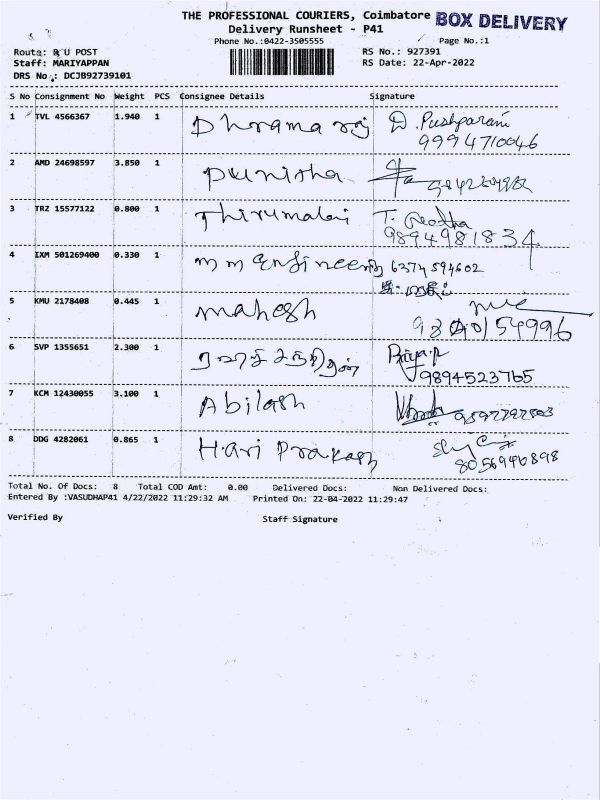 THE PROFESSIONAL COURIERS, Coimbatore BOX DELIVERY
Delivery Runsheet - P41
Phone No.:0422-3505555 Page No.:1
Route: B U POST RS No.: 927391
Staff: MARIYAPPAN RS Date: 22-Apr-2022
DRS No.: DCJB92739101
S No Consignment No Weight PCS Consignee Details Signature
1 TVL 4566367 1.940 1 Dhrama raj D. Pushparani
9994710046
2 AMD 24698597 3.850 1 Punitha
3 TRZ 15577122 0.800 1 Thirumalai T. Geetha
9894981834
4 IXM 501269400 0.330 1 mm Engineering 6374594602
5 KMU 2178408 0.445 1 mahesh
9840154996
6 SVP 1355651 2.300 1 Priya.P
9894523765
7 KCM 12430055 3.100 1 Abilash
8 DDG 4282061 0.865 1 Hari Prakash
8056946898
Total No. Of Docs: 8 Total COD Amt: 0.00 Delivered Docs: Non Delivered Docs:
Entered By :VASUDHAP41 4/22/2022 11:29:32 AM Printed On: 22-04-2022 11:29:47
Verified By Staff Signature